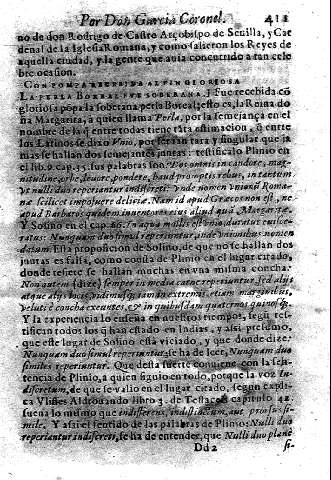 Por Don Garcia Coronel. 411
no de don Rodrigo de Castro Arçobispo de Sevilla, y Car
denal de la Iglesia Romana, y como salieron los Reyes de
aquella ciudad, y la gente que avia concurrido a tan cele
bre ocasion.
CON POMPA RECEBIDA AL FIN GLORIOSA
LA PERLA BOREAL FVE SOBERANA.] Fue recebida cō
gloriosa pōpa la soberana perla Boreal, esto es, la Reina do
ña Margarita, a quien llama Perla, por la semejança en el
nombre de la q̃ entre todas tiene tāta estimacion, q̃ entre
los Latinos se dixo Vnio, por ser tan rara y singular que ja
mas se hallan dos semejantes juntas: testificalo Plinio en
el lib. 9. cap. 35. sus palabras son: Dos omnis in candore, mag-
nitudine, orbe, levore, pondere, haud promptis rebus, in tantum
vt nulli duo reperiantur indiscreti: vnde nomen vnionū Roma-
næ scilicet imposuere deliciæ. Nam id apud Græcos non est, ne
apud Barbaros quidem inventores eius aliud quā Margaritæ.
Y Solino en el cap.
Nunquam duo simul reperiuntur, unde Vnionibus nomen
datum. Esta proposicion de Solino, de que no se hallan dos
juntas es falsa, como consta de Plinio en el lugar citado,
donde refiere se hallan muchas en vna misma concha.
Non autem (dize) semper in media carne reperiuntur, sed aliis
atque aliis locis, vidimusq; iam in extremis etiam marginibus,
velut è concha exeuntes, & in quibusdam quaternos quinosq;
Y la experiencia lo enseña en nuestros tiempos, segū tes-
tifican todos los q̃ han estado en Indias, y assi presumo,
que este lugar de Solino està viciado, y que donde dize:
Nunquam duo simul reperiuntur, se ha de leer, Nunquam duo
similes reperiuntur. Que desta suerte conviene con la sen-
tencia de Plinio, a quien siguio en todo, porque la voz In-
discretum, de que se valio en el lugar citado, segun expli-
ca Vlisses Aldrouando libro 3. de Testaceis capitulo 42.
suena lo mismo que indifferens, indistinctum, aut prorsus si-
mile. Y assi el sentido de las palabras de Plinio: Nulli duo
reperiantur indiscreti, se ha de entender, que Nulli duo planè
Dd 2 si-